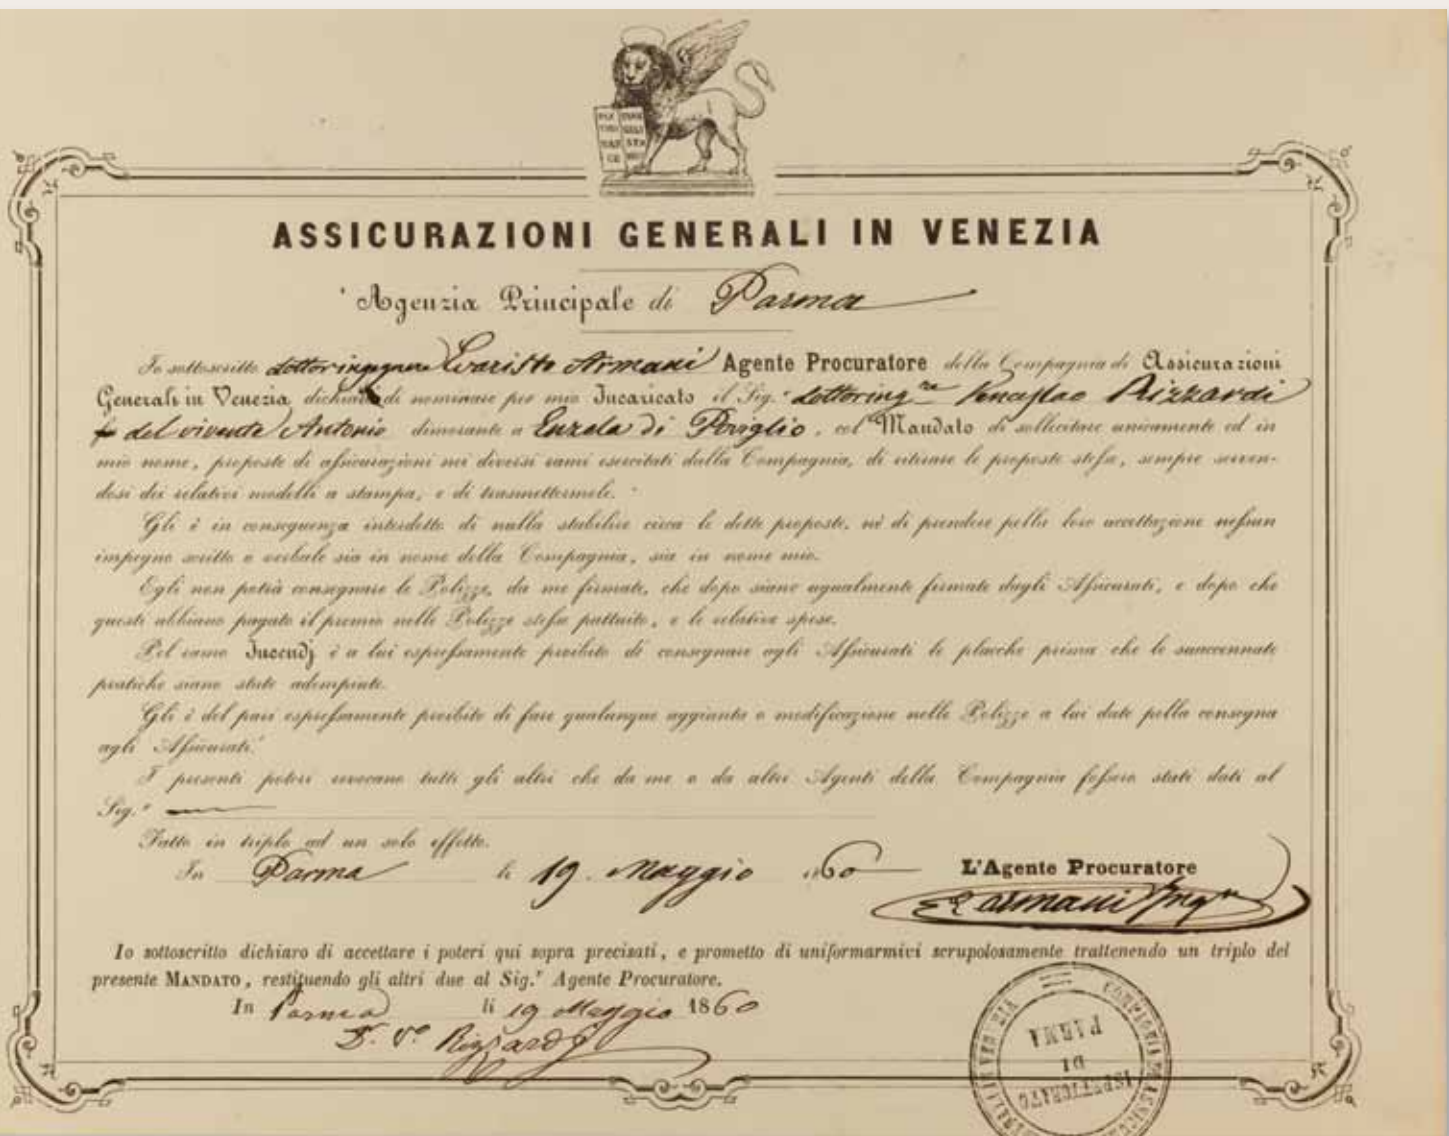 ASSICURAZIONI GENERALI IN VENEZIA
Agenzia Principale di Parma
Io sottoscritto dottor ingegnere Evaristo Armani Agente Procuratore della Compagnia di Assicurazioni
Generali in Venezia dichiaro di nominare per mio Incaricato il Sig.r dottor ing.re Venceslao Rizzardi
del vivente Antonio dimorante a Enzola di Poviglio, col Mandato di sollecitare unicamente ed in
mio nome, proposte di assicurazioni nei diversi rami esercitati dalla Compagnia, di ritirare le proposte stesse, sempre serven-
dosi dei relativi modelli a stampa, e di trasmettermele.
Gli è in conseguenza interdetto di nulla stabilire circa le dette proposte, nè di prendere pella loro accettazione nessun
impegno scritto o verbale sia in nome della Compagnia, sia in nome mio.
Egli non potrà consegnare le Polizze, da me firmate, che dopo siano ugualmente firmate dagli Assicurati, e dopo che
questi abbiano pagato il premio nelle Polizze stesse pattuito, e le relative spese.
Pel ramo Incendj è a lui espressamente proibito di consegnare agli Assicurati le placche prima che le suaccennate
pratiche siano state adempiute.
Gli è del pari espressamente proibito di fare qualunque aggiunta o modificazione nelle Polizze a lui date pella consegna
agli Assicurati.
I presenti poteri revocano tutti gli altri che da me o da altri Agenti della Compagnia fossero stati dati al
Sig.r
Fatto in triplo ad un solo effetto.
In Parma li 19 Maggio 1860 L'Agente Procuratore
E Armani Ing.re
Io sottoscritto dichiaro di accettare i poteri qui sopra precisati, e prometto di uniformarmivi scrupolosamente trattenendo un triplo del
presente MANDATO, restituendo gli altri due al Sig.r Agente Procuratore.
In Parma li 19 Maggio 1860
D. V.o Rizzardi
ISPETTORATO
DI
PARMA